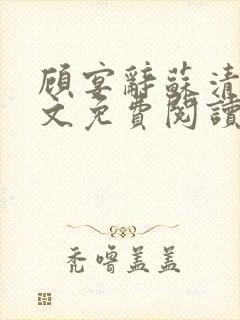 顧宴辭蘇清
文免費閱讀
禿嚕蓋蓋